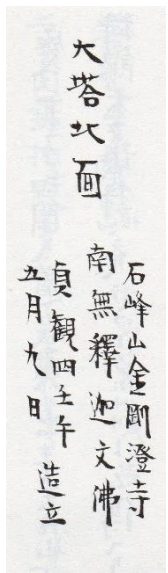 大塔北面
石峰山金剛澄寺
南無釋迦文佛
貞観四壬午
五月九日
造立